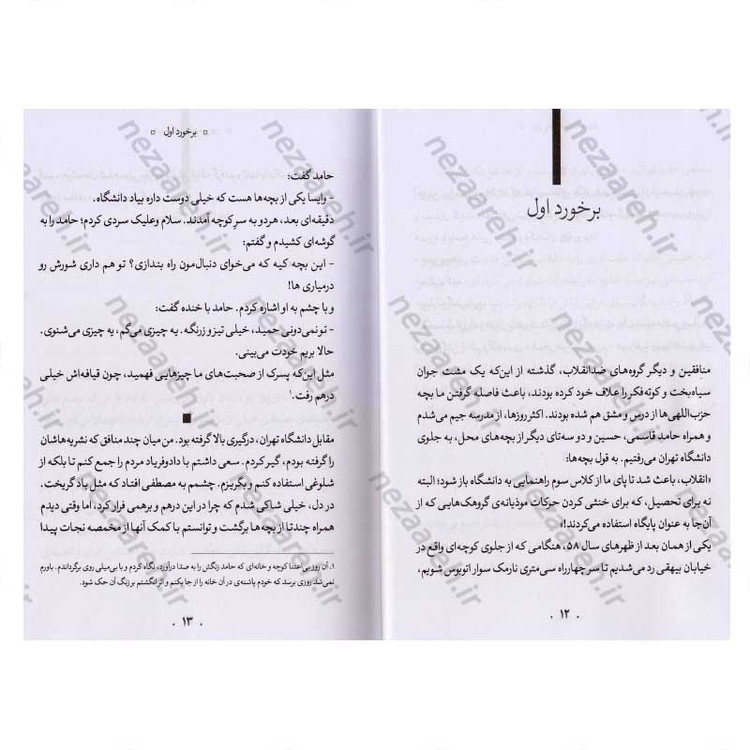 برخورد اول
منافقین و دیگر گروه‌های ضدانقلاب، گذشته از این‌که یک مشت جوان
سیاه‌بخت و کوته‌فکر را علاف خود کرده بودند، باعث فاصله گرفتن ما بچه
حزب‌اللهی‌ها از درس و مشق هم شده بودند. اکثر روزها، از مدرسه جیم می‌شدم
و همراه حامد قاسمی، حسین و دو سه‌تای دیگر از بچه‌های محل، به جلوی
دانشگاه تهران می‌رفتیم. به قول بچه‌ها:
«انقلاب، باعث شد تا پای ما از کلاس سوم راهنمایی به دانشگاه باز شود؛ البته
نه برای تحصیل، که برای خنثی کردن حرکات موذیانه‌ی گروهک‌هایی که از
آن‌جا به عنوان پایگاه استفاده می‌کردند!»
یکی از همان بعد از ظهرهای سال ۵۸، هنگامی که از جلوی کوچه‌ای واقع در
خیابان بیهقی رد می‌شدیم تا سر چهارراه سی‌متری نارمک سوار اتوبوس شویم،
۱۲
برخورد اول
حامد گفت:
- وایسا یکی از بچه‌ها هست که خیلی دوست داره بیاد دانشگاه.
دقیقه‌ای بعد، هر دو به سر کوچه آمدند. سلام وعلیک سردی کردم؛ حامد را به
گوشه‌ای کشیدم و گفتم:
- این بچه کیه که می‌خوای دنبال‌مون راه بندازی؟ تو هم داری شورش رو
درمیاری ها!
و با چشم به او اشاره کردم. حامد با خنده گفت:
- تو نمی‌دونی حمید، خیلی تیز و زرنگه. یه چیزی می‌گم، یه چیزی می‌شنوی.
حالا بریم خودت می‌بینی.
مثل این‌که پسرک از صحبت‌های ما چیزهایی فهمید، چون قیافه‌اش خیلی
درهم رفت.۱
مقابل دانشگاه تهران، درگیری بالا گرفته بود. من میان چند منافق که نشریه‌هاشان
را گرفته بودم، گیر کردم. سعی داشتم با دادوفریاد مردم را جمع کنم تا بلکه از
شلوغی استفاده کنم و بگریزم. چشمم به مصطفی افتاد که مثل باد گریخت.
در دل، خیلی شاکی شدم که چرا در این درهم و برهمی فرار کرد، اما وقتی دیدم
همراه چندتا از بچه‌ها برگشت و توانستم با کمک آنها از مخمصه نجات پیدا
۱. آن روز بی‌اعتنا کوچه و خانه‌ای که حامد زنگش را به صدا درآورد، نگاه کردم و با بی‌میلی روی برگرداندم. باورم
نمی‌شد روزی برسد که خودم پاشنه‌ی در آن خانه را از جا بکنم و اثر انگشتم بر زنگ آن حک شود.
۱۳
nezaareh.ir